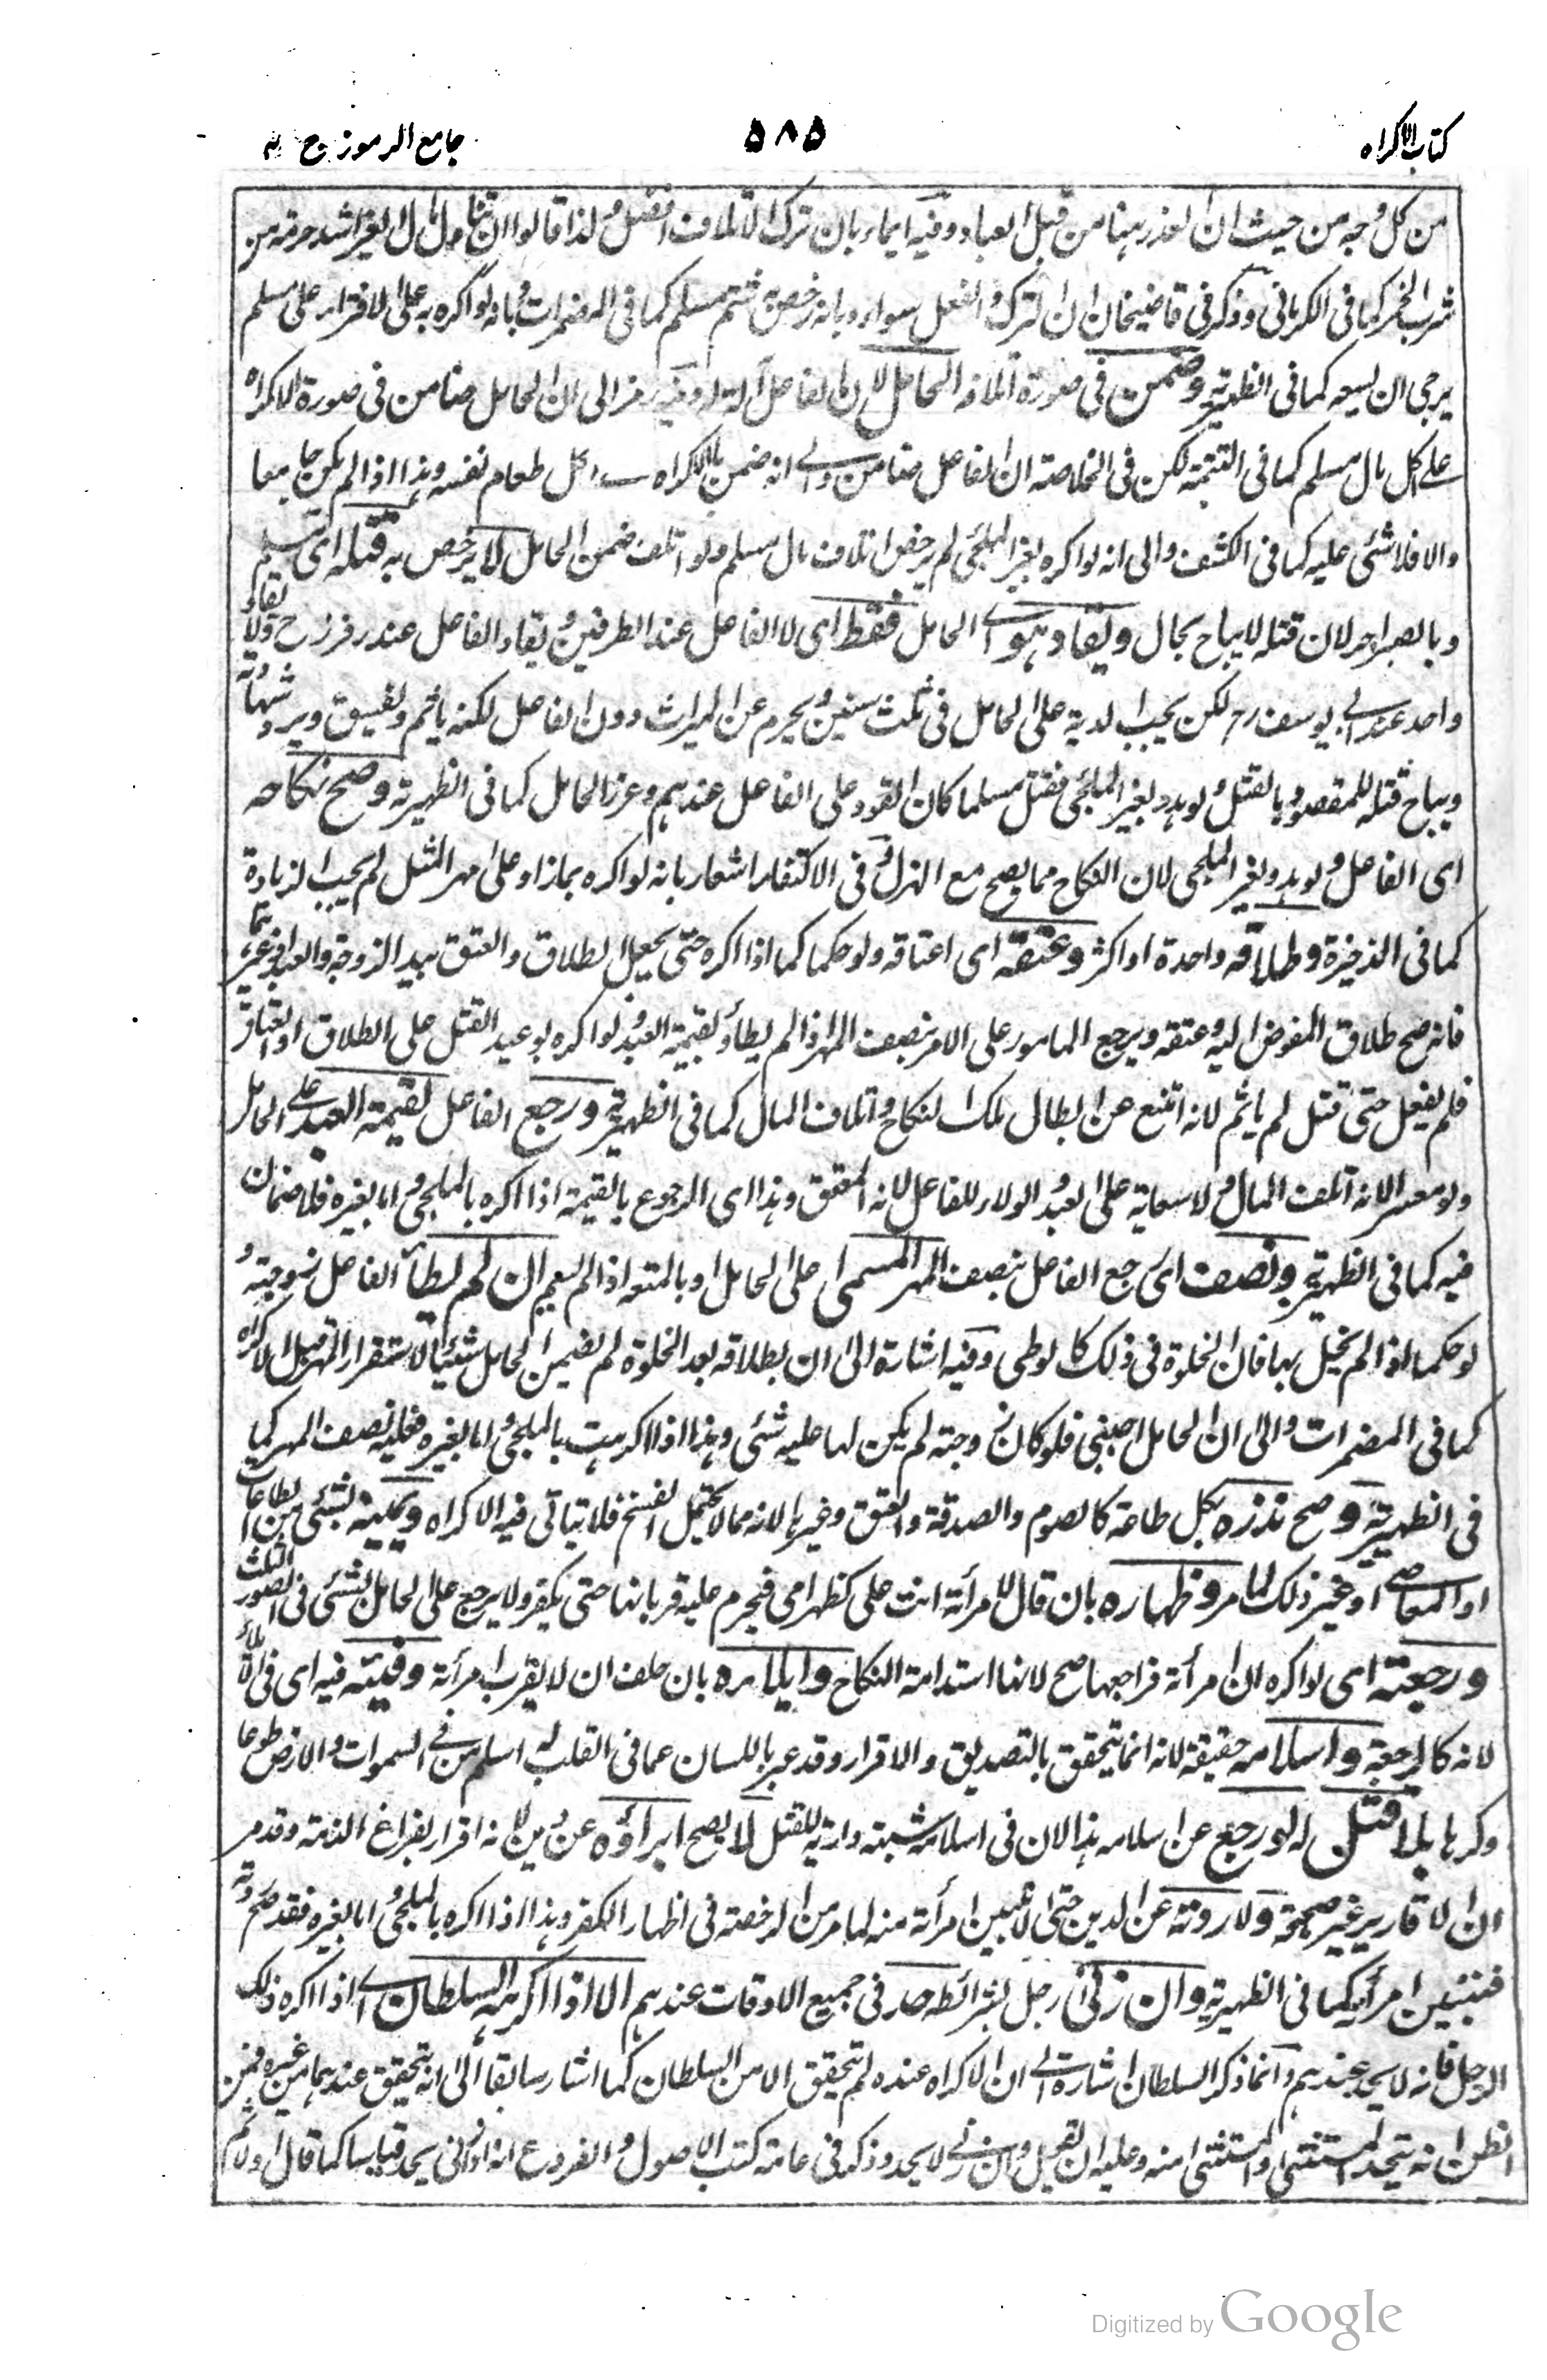 كتاب الاكراه
٥٨٥
جامع الرموز ج
من كل وجه من حيث ان العذر ههنا من قبل العباد وفيه ايماء بان ترك الاتلاف افضل ولذا قالوا ان تناول مال الغير اشد حرمة من
شرب الخمر كما في الكرماني وذكر في قاضيخان ان الترك والفعل سواء وبانه رخص شتم مسلم كما في المضمرات وبانه لو اكره على الافتراء على مسلم
يرجى ان يسعه كما في الظهيرية وضمن في صورة اتلافه الحامل لان الفاعل آلة له وفيه رمز الى ان الحامل ضامن في صورة الاكراه
على اكل مال مسلم كما في التتمة لكن في الخلاصة ان الفاعل ضامن والى انه ضمن بالاكراه على اكل طعام نفسه وهذا اذا لم يكن جايعا
والا فلا شئ عليه كما في الكشف والى انه لو اكره بغير الملجئ لم يرخص اتلاف مال مسلم ولو اتلف ضمن الحامل لا يرخص به قتله اى مسلم
وبالصبر اجر لان قتله لا يباح بحال ويقاد هو اى الحامل فقط اى لا الفاعل عند الطرفين ويقاد الفاعل عند زفر رح ولا يقاد
واحد عند ابى يوسف رح لكن يجب الدية على الحامل في ثلث سنين ويحرم عن الميراث دون الفاعل لكنه ياثم ويفسق ويرد شهادته
ويباح قتله للمقصود بالقتل ولو هدد بغير الملجئ فقتل مسلما كان القود على الفاعل عندهم وعزر الحامل كما في الظهيرية وصح نكاحه
اى الفاعل ولو هدد بغير الملجئ لان النكاح مما يصح مع الهزل وفي الاكتفاء اشعار بانه لو اكره بما زاد على مهر المثل لم يجب الزيادة
كما في الذخيرة وطلاقه واحدة او اكثر وعتقه اى اعتاقه ولو حكما كما اذا اكره حتى يجعل الطلاق والعتق بيد الزوجة والعبد او غيرهما
فانه صح طلاق المفوض اليه وعتقه ويرجع المامور على الامر بنصف المهر اذا لم يطأ وبقيمة العبد ولو اكره بوعيد القتل على الطلاق او العتاق
فلم يفعل حتى قتل لم ياثم لانه امتنع عن ابطال ملك النكاح واتلاف المال كما في الظهيرية ورجع الفاعل بقيمة العبد على الحامل
ولو معسرا لانه اتلف المال ولا سعاية على العبد والولاء للفاعل لانه المعتق وهذا اى الرجوع بالقيمة اذا اكره بالملجئ واما بغيره فلا ضمان
فيه كما في الظهيرية ونصف اى رجع الفاعل بنصف المهر المسمى على الحامل او بالمتعة اذا لم يسم ان لم يطأ الفاعل زوجته و
لو حكما اذا لم يخل بها فان الخلوة في ذلك كالوطى وفيه اشارة الى ان بطلاقه بعد الخلوة لم يضمن الحامل شيئا لاستقرار المهر قبل الاكراه
كما في المضمرات والى ان الحامل اجنبى فلو كان زوجته لم يكن لها عليه شئ وهذا اذا اكرهت بالملجئ واما بغيره فعليه نصف المهر كما
في الظهيرية وصح نذره بكل طاعة كالصوم والصدقة والعتق وغيرها لانه مما لا يحتمل الفسخ فلا يتاتى فيه الاكراه ويمينه بشئ من الطاعات
او المعاصى او غير ذلك لما مر وظهاره بان قال لامرأته انت على كظهر امى فيحرم عليه قربانها حتى يكفر ولا يرجع على الحامل بشئ في الصور الثلث
ورجعته اى لو اكره ان امرأته فراجعها صح لانها استدامة النكاح وايلاءه بان حلف ان لا يقرب امرأته وفيئه فيه اى في الايلاء
لانه كالرجعة واسلامه حقيقة لانه انما يتحقق بالتصديق والاقرار وقد عبر باللسان عما في القلب وله اسلم من في السموات والارض طوعا
وكرها بلا قتل له لو رجع عن اسلامه هذا لان في اسلامه شبهة دارئة للقتل لا يصح ابراؤه عن دين لانه اقرار بفراغ الذمة وقد مر
ان الاقارير غير صحيحة ولا ردته عن الدين حتى لا تبين امرأته منه لما مر من الرخصة في اظهار الكفر وهذا اذا اكره بالملجئ واما بغيره فقد صح ردته
فتبين امرأته كما في الظهيرية وان زنى رجل بشرائطه حد في جميع الاوقات عندهم الا اذا اكرهه السلطان اى اذا اكره ذلك
الرجل فانه لا يحد عندهم وانما ذكر السلطان اشارة الى ان الاكراه عنده لم يتحقق الا من السلطان كما اشار سابقا الى انه يتحقق عندهما من غيره فمن
الظن انه يتحد المستثنى والمستثنى منه وعليه ان يقيل وان زنى لا يحد وذكر في عامة كتب الاصول والفروع انه ان زنى يحد قياسا كما قال اولا ثم